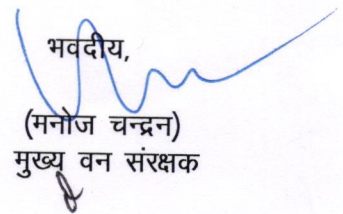 भवदीय,
(मनोज चन्द्रन)
मुख्य वन संरक्षक